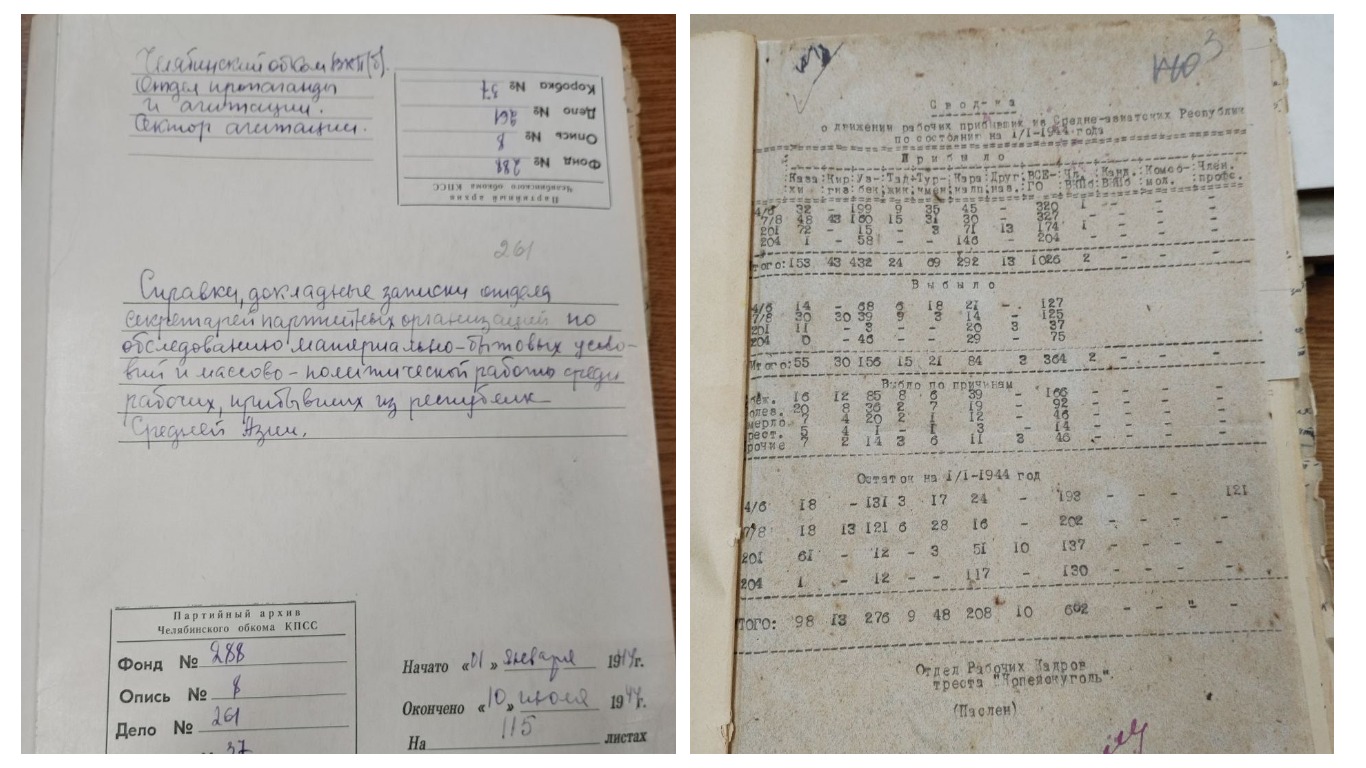 Челябинский обком ВКП(б).
Отдел пропаганды
и агитации.
Сектор агитации.
Партийный архив
Челябинского обкома КПСС
Фонд № 288
Опись № 8
Дело № 261
Коробка № 37
261
Справки, докладные записки отдела
секретарей партийных организаций по
обследованию материально-бытовых усло-
вий и массово-политической работы среди
рабочих, прибывших из республик
Средней Азии.
Партийный архив
Челябинского обкома КПСС
Фонд № 288
Опись № 8
Дело № 261
37
Начато «01» января 1944г.
Окончено «10» июля 1944г.
На 115 листах
3
Свод-ка
о движении рабочих прибывших из Средне-азиатских Республик
по состоянию на 1/I-1944 года
Прибыло
:Каза:Кир:Уз-:Тад:Тур-:Кара:Друг:ВСЕ-:Чл.:Канд.:Комсо-:Член.
:хи :гиз:бек:жик:мен:калп:нац.:ГО :ВКПб:ВКПб :мол. :профс.
4/6 32 - 199 9 35 45 - 320 1 - - -
7/8 48 43 160 15 31 30 - 327 - - - -
201 72 - 15 - 3 71 13 174 1 - - -
204 1 - 58 - - 146 - 204 - - -
того:153 43 432 24 69 292 13 1026 2 - - -
Выбыло
4/6 14 - 68 6 18 21 - 127
7/8 30 30 39 9 3 14 - 125
201 11 - 3 - - 20 3 37
204 0 - 46 - - 29 - 75
Итого:55 30 156 15 21 84 3 364 2 - - -
Выбло по причинам
беж. 16 12 85 8 6 39 - 166 - - - -
олез. 20 8 36 2 7 19 - 92 - - - -
мерло 7 4 20 2 1 12 - 46 - - - -
рест. 5 4 1 - 1 3 - 14 - - - -
рочие 7 2 14 3 6 11 3 46 - - - -
Остаток на 1/I-1944 год
4/6 18 - 131 3 17 24 - 193 - - - 121
7/8 18 13 121 6 28 16 - 202 - - - -
201 61 - 12 - 3 51 10 137 - - - -
204 1 - 12 - - 117 - 130 - - - -
ТОГО: 98 13 276 9 48 208 10 662 - - " -
Отдел Рабочих Кадров
треста "Копейскуголь".
(Паслен)